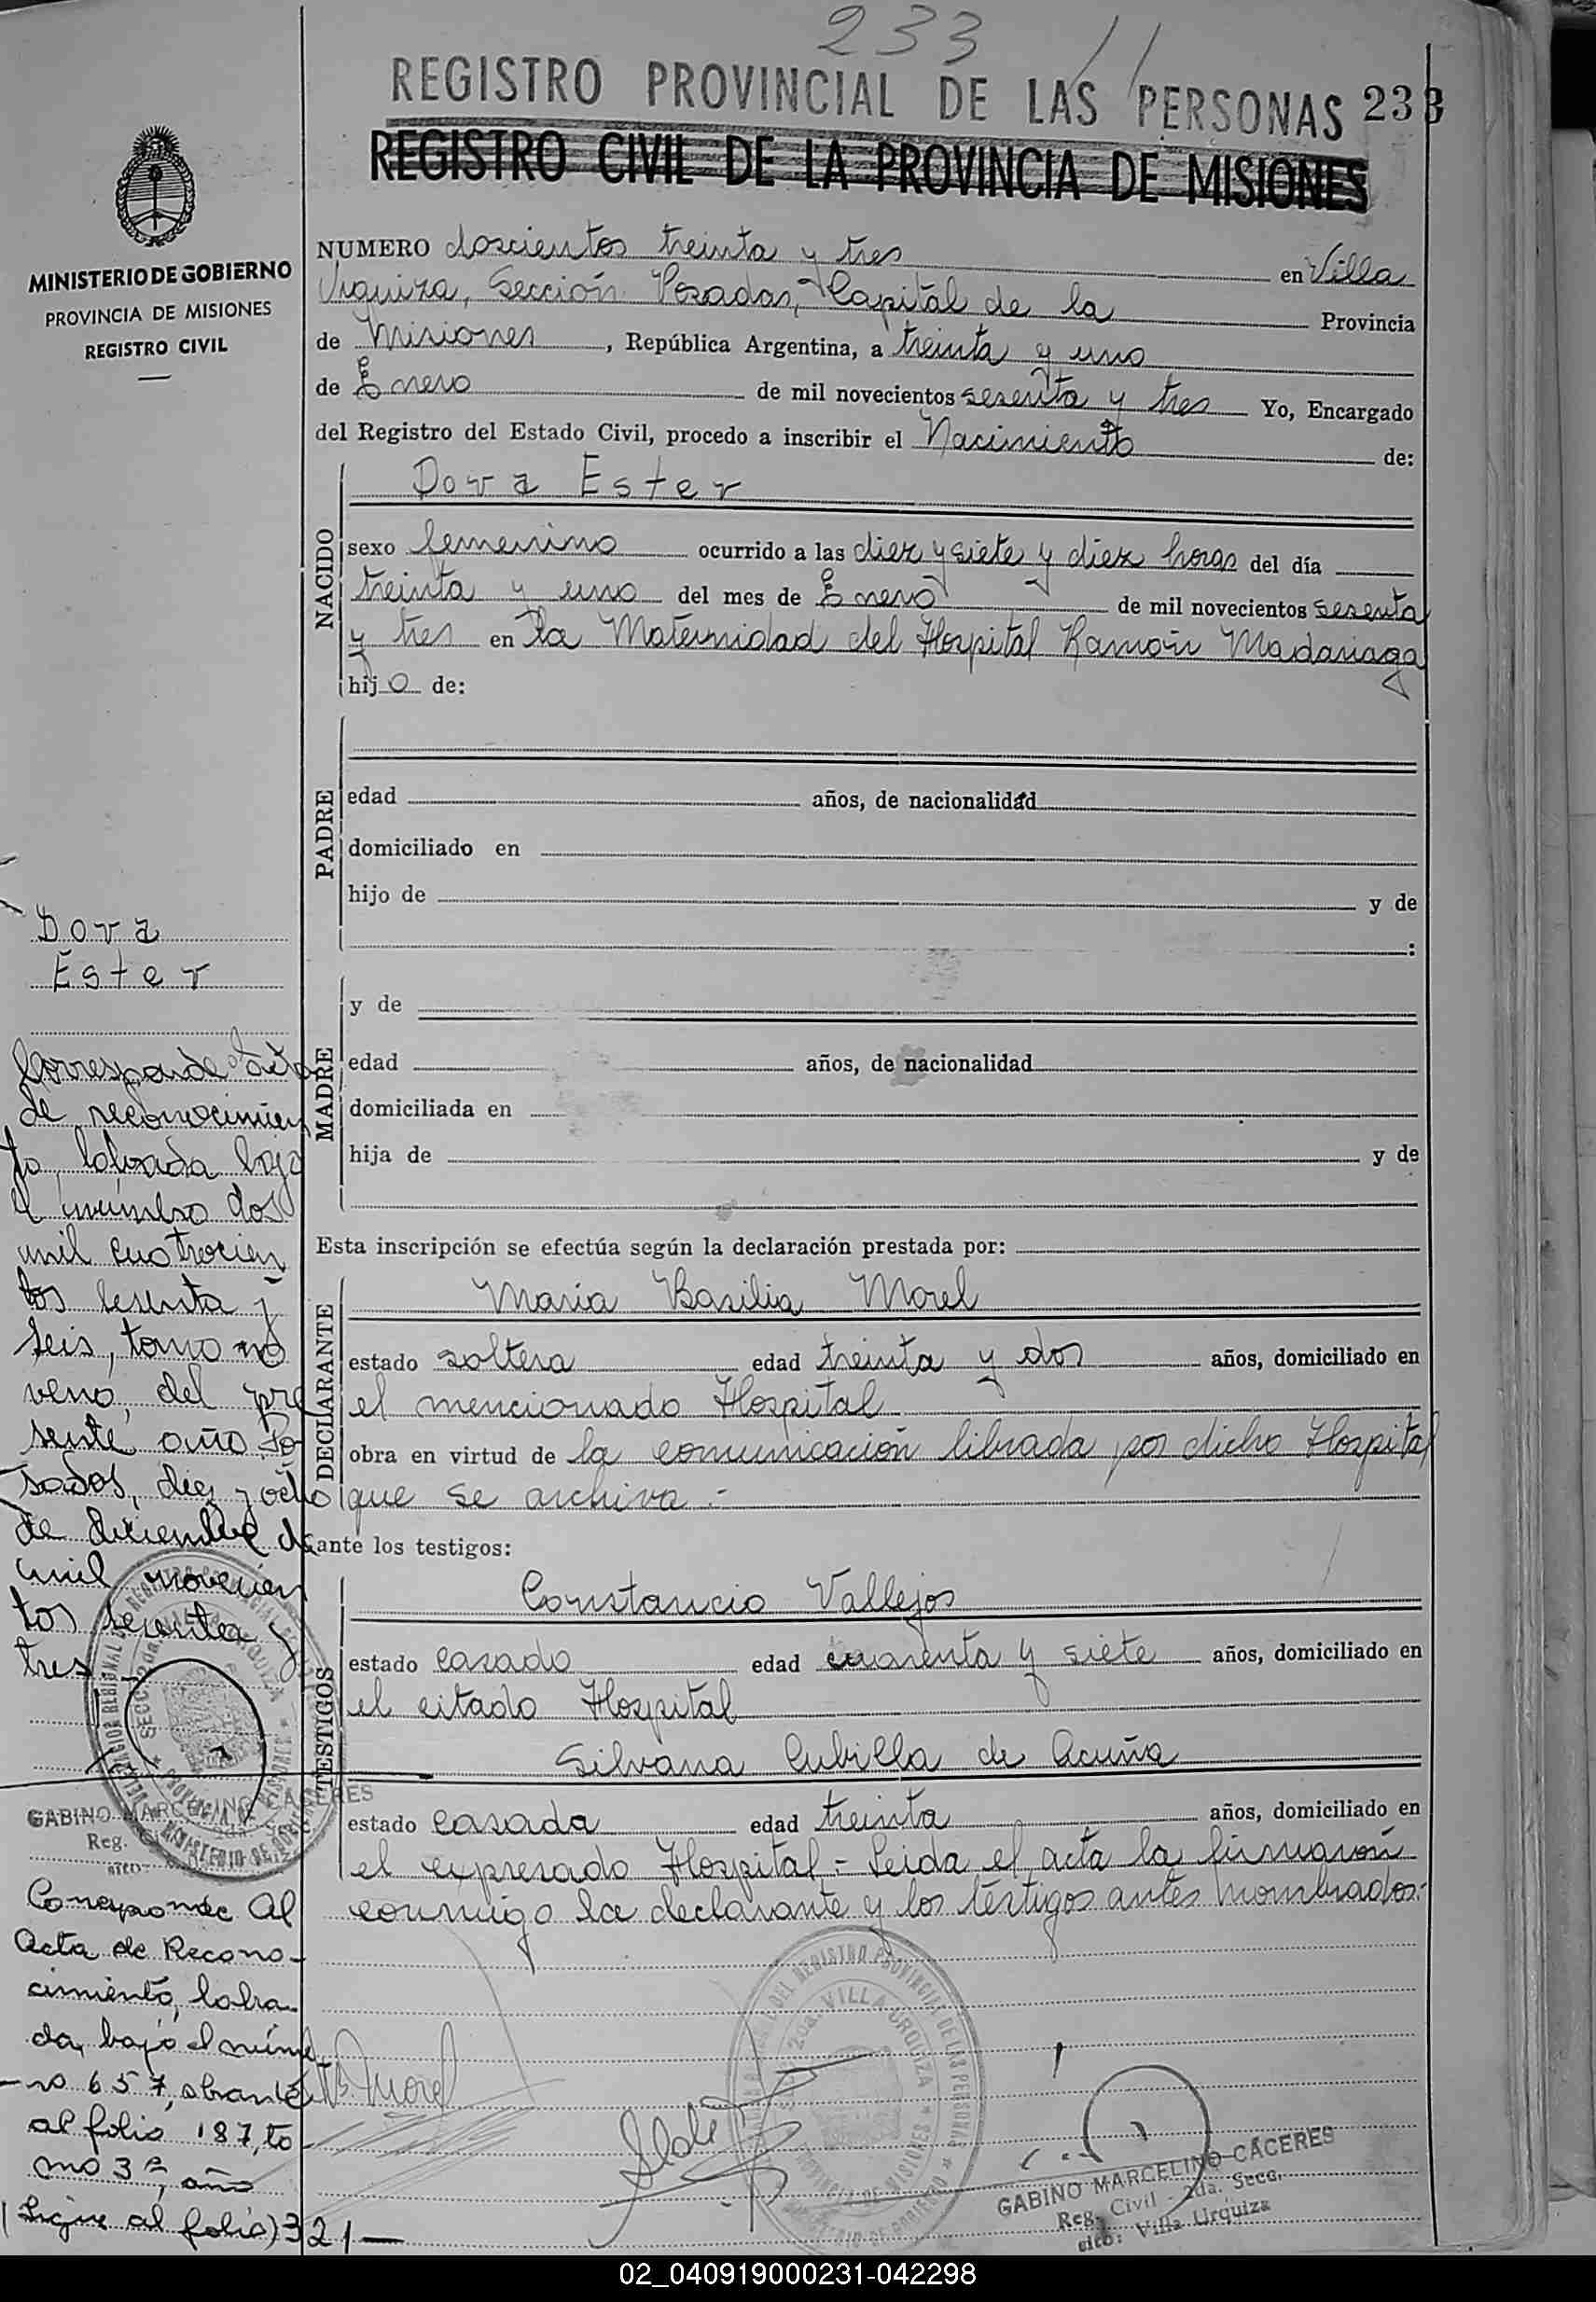 233
REGISTRO PROVINCIAL DE LAS PERSONAS 233
REGISTRO CIVIL DE LA PROVINCIA DE MISIONES
MINISTERIO DE GOBIERNO
PROVINCIA DE MISIONES
REGISTRO CIVIL
NUMERO doscientos treinta y tres en Villa
Urquiza, Sección Posadas, Capital de la Provincia
de Misiones, República Argentina, a treinta y uno
de Enero de mil novecientos sesenta y tres Yo, Encargado
del Registro del Estado Civil, procedo a inscribir el Nacimiento de:
NACIDO
Dora Ester
sexo femenino ocurrido a las diez y siete y diez horas del día
treinta y uno del mes de Enero de mil novecientos sesenta
y tres en la Maternidad del Hospital Ramón Madariaga
hijo de:
PADRE
edad años, de nacionalidad
domiciliado en
hijo de y de
:
MADRE
y de
edad años, de nacionalidad
domiciliada en
hija de y de
Esta inscripción se efectúa según la declaración prestada por:
DECLARANTE
Maria Basilia Morel
estado soltera edad treinta y dos años, domiciliado en
el mencionado Hospital
obra en virtud de la comunicación librada por dicho Hospital
que se archiva.-
ante los testigos:
TESTIGOS
Constancio Vallejos
estado casado edad cuarenta y siete años, domiciliado en
el citado Hospital
Silvana Cubilla de Acuña
estado casada edad treinta años, domiciliado en
el expresado Hospital.- Leida el acta la firmaron
conmigo la declarante y los testigos antes nombrados.-
Morel
VILLA URQUIZA
GABINO MARCELINO CACERES
Reg. Civil - 2da. Secc.
Villa Urquiza
Dora
Ester
Corresponde Acta
de reconocimien
to, labrada bajo
el número dos
mil cuatrocien
tos sesenta y
seis, tomo no
veno, del pre
sente año Po
sadas, diez y ocho
de diciembre de
mil novecien
tos sesenta y
tres
GABINO MARCELINO CACERES
Reg.
Corresponde Al
Acta de Recono-
cimiento, labra-
da, bajo el núme
-ro 657, obrante
al folio 187, to
mo 3º, año
(Sigue al folio) 321—
02_040919000231-042298